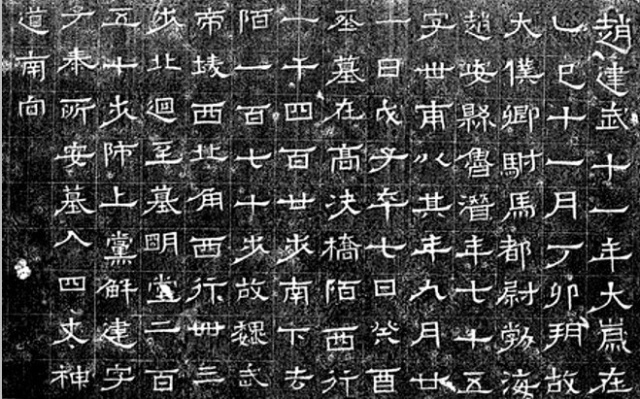 趙建武十一年大歲在
乙巳十一月丁卯朔故
大僕卿駙馬都尉勃海
趙安縣魯潛年七十五
字世甫以其年九月廿
一日戊子卒七日癸酉
葬墓在高決橋陌西行
一千四百廿步南下去
陌一百七十步故魏武
帝陵西北角西行卌三
步北迴至墓明堂二百
五十步師上黨解建字
子泰所安墓入四丈神
道南向